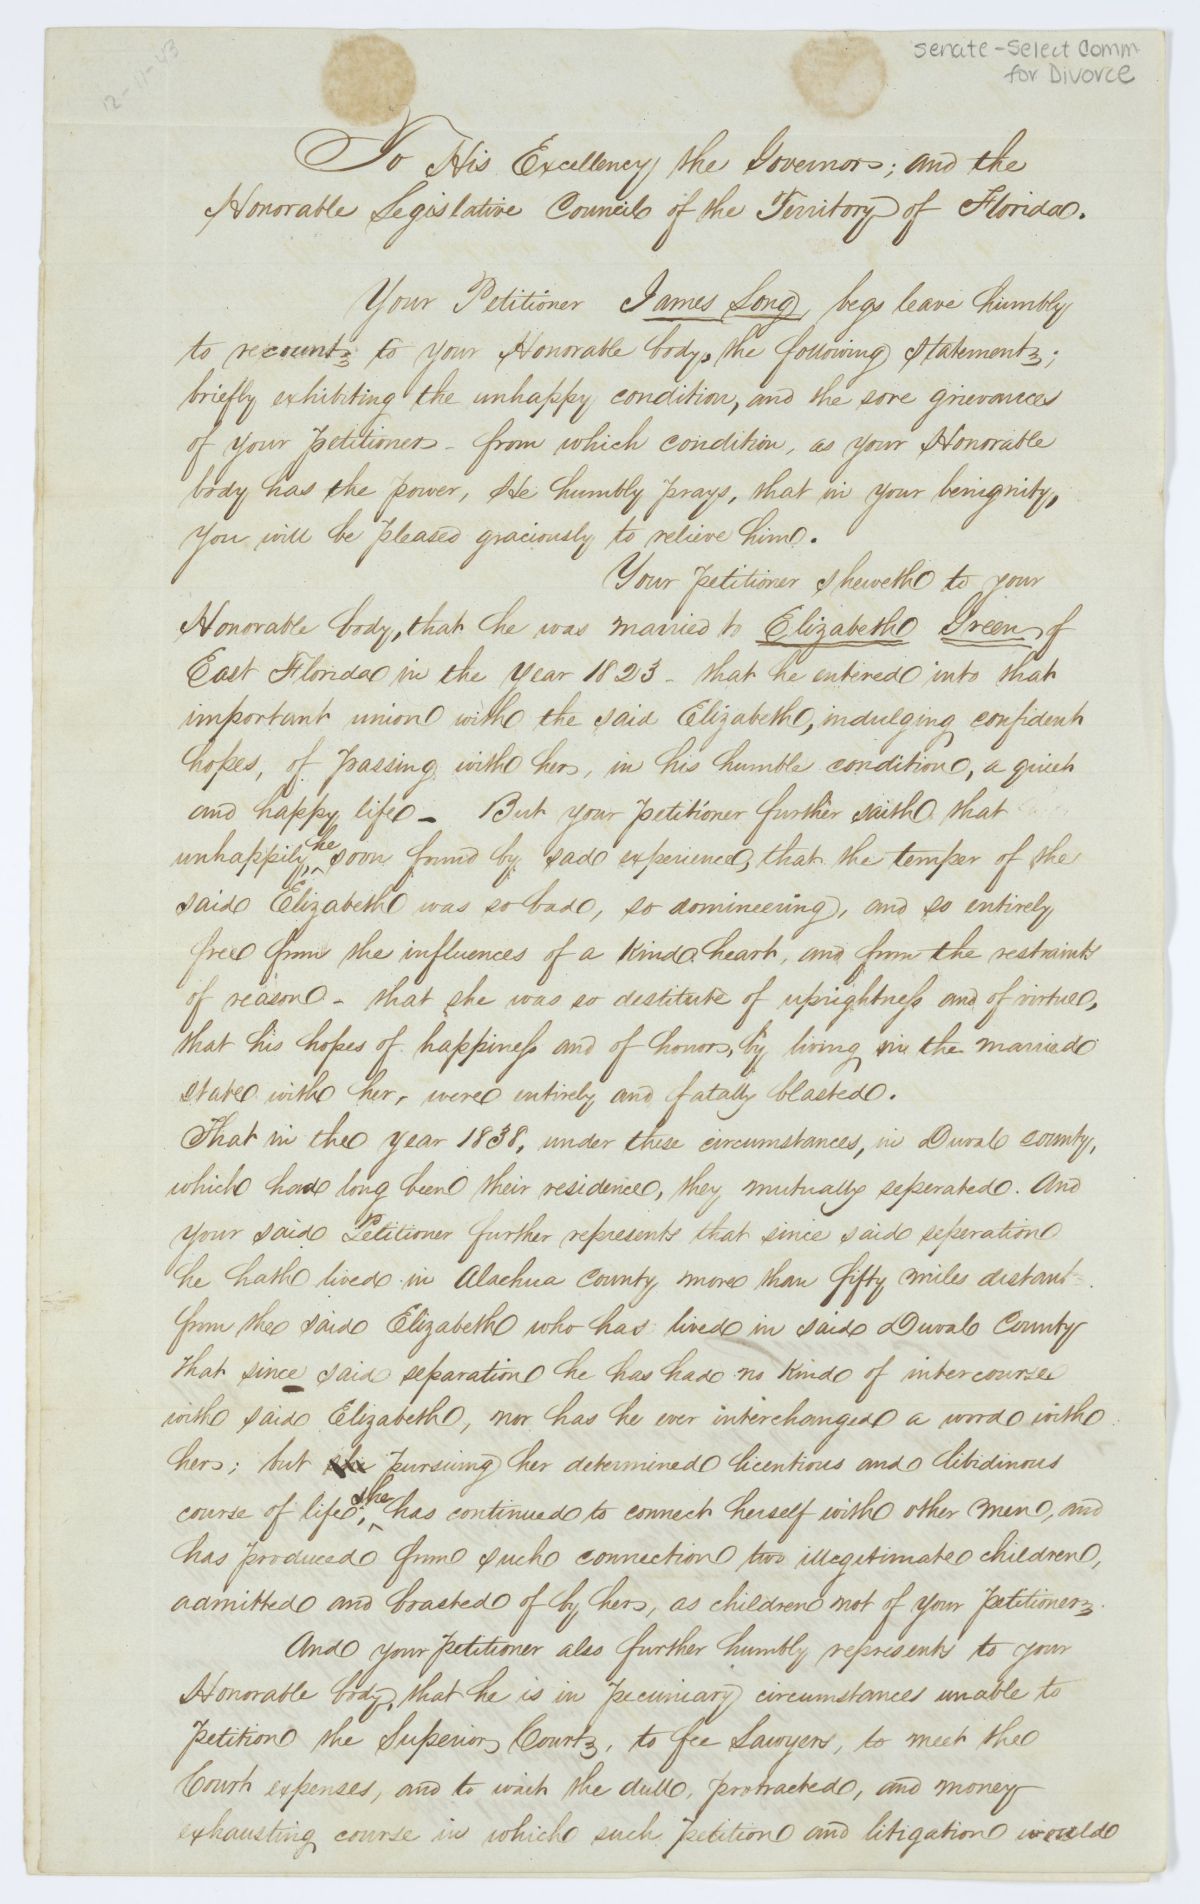 Senate - Select Comm
for Divorce
12-11-43
To His Excellency the Governor; and the
Honorable Legislative Council of the Territory of Florida.
Your Petitioner James Long, begs leave humbly
to recount to your Honorable body, the following statement;
briefly exhibiting the unhappy condition, and the sore grievances
of your petitioner - from which condition, as your Honorable
body has the power, He humbly prays, that in your benignity,
you will be pleased graciously to relieve him.
Your petitioner sheweth to your
Honorable body, that he was married to Elizabeth Green of
East Florida in the year 1823 - that he entered into that
important union with the said Elizabeth, indulging confident
hopes, of passing with her, in his humble condition, a quiet
and happy life - But your petitioner further saith that
unhappily, he soon found by sad experience, that the temper of the
said Elizabeth was so bad, so domineering, and so entirely
free from the influences of a kind heart, and from the restraints
of reason - that she was so destitute of uprightness and of virtue,
that his hopes of happiness and of honor, by living in the married
state with her, were entirely and fatally blasted.
That in the year 1838, under these circumstances, in Duval county,
which had long been their residence, they mutually seperated. And
your said Petitioner further represents that since said seperation
he hath lived in Alachua County more than fifty miles distant
from the said Elizabeth who has lived in said Duval County
that since said separation he has had no kind of intercourse
with said Elizabeth, nor has he ever interchanged a word with
her; but pursuing her determined licentious and libidinous
course of life, she has continued to connect herself with other men, and
has produced from such connection two illegitimate children,
admitted and brasted of by her, as children not of your petitioner.
And your petitioner also further humbly represents to your
Honorable body, that he is in pecuniary circumstances unable to
petition the Superior Court, to fee Lawyers, to meet the
Court expenses, and to wait the dull, protracted, and money
exhausting course in which such petition and litigation would